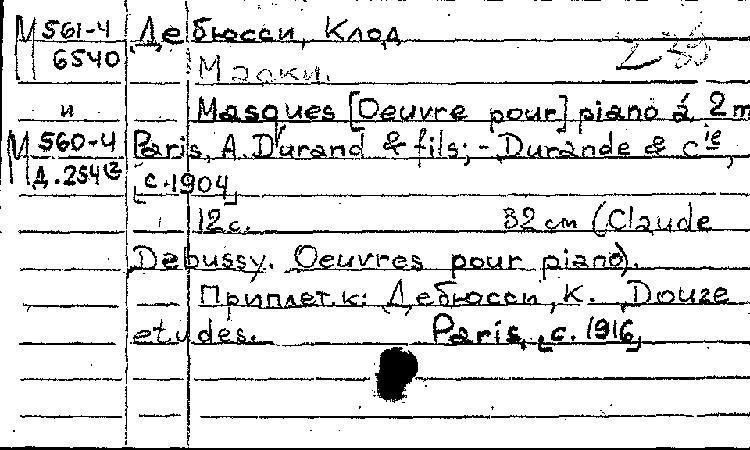 М 561-4 Дебюсси, Клод
6540 Маски.
и Masques [Oeuvre pour] piano à 2 m
М 560-4 Paris, A. Durand & fils; - Durande & Cie,
Д.254 [c.1904]
12 с. 32 см (Claude
Debussy. Oeuvres pour piano).
Приплет. к: Дебюсси, К. Douze
etudes. Paris, [c. 1916]